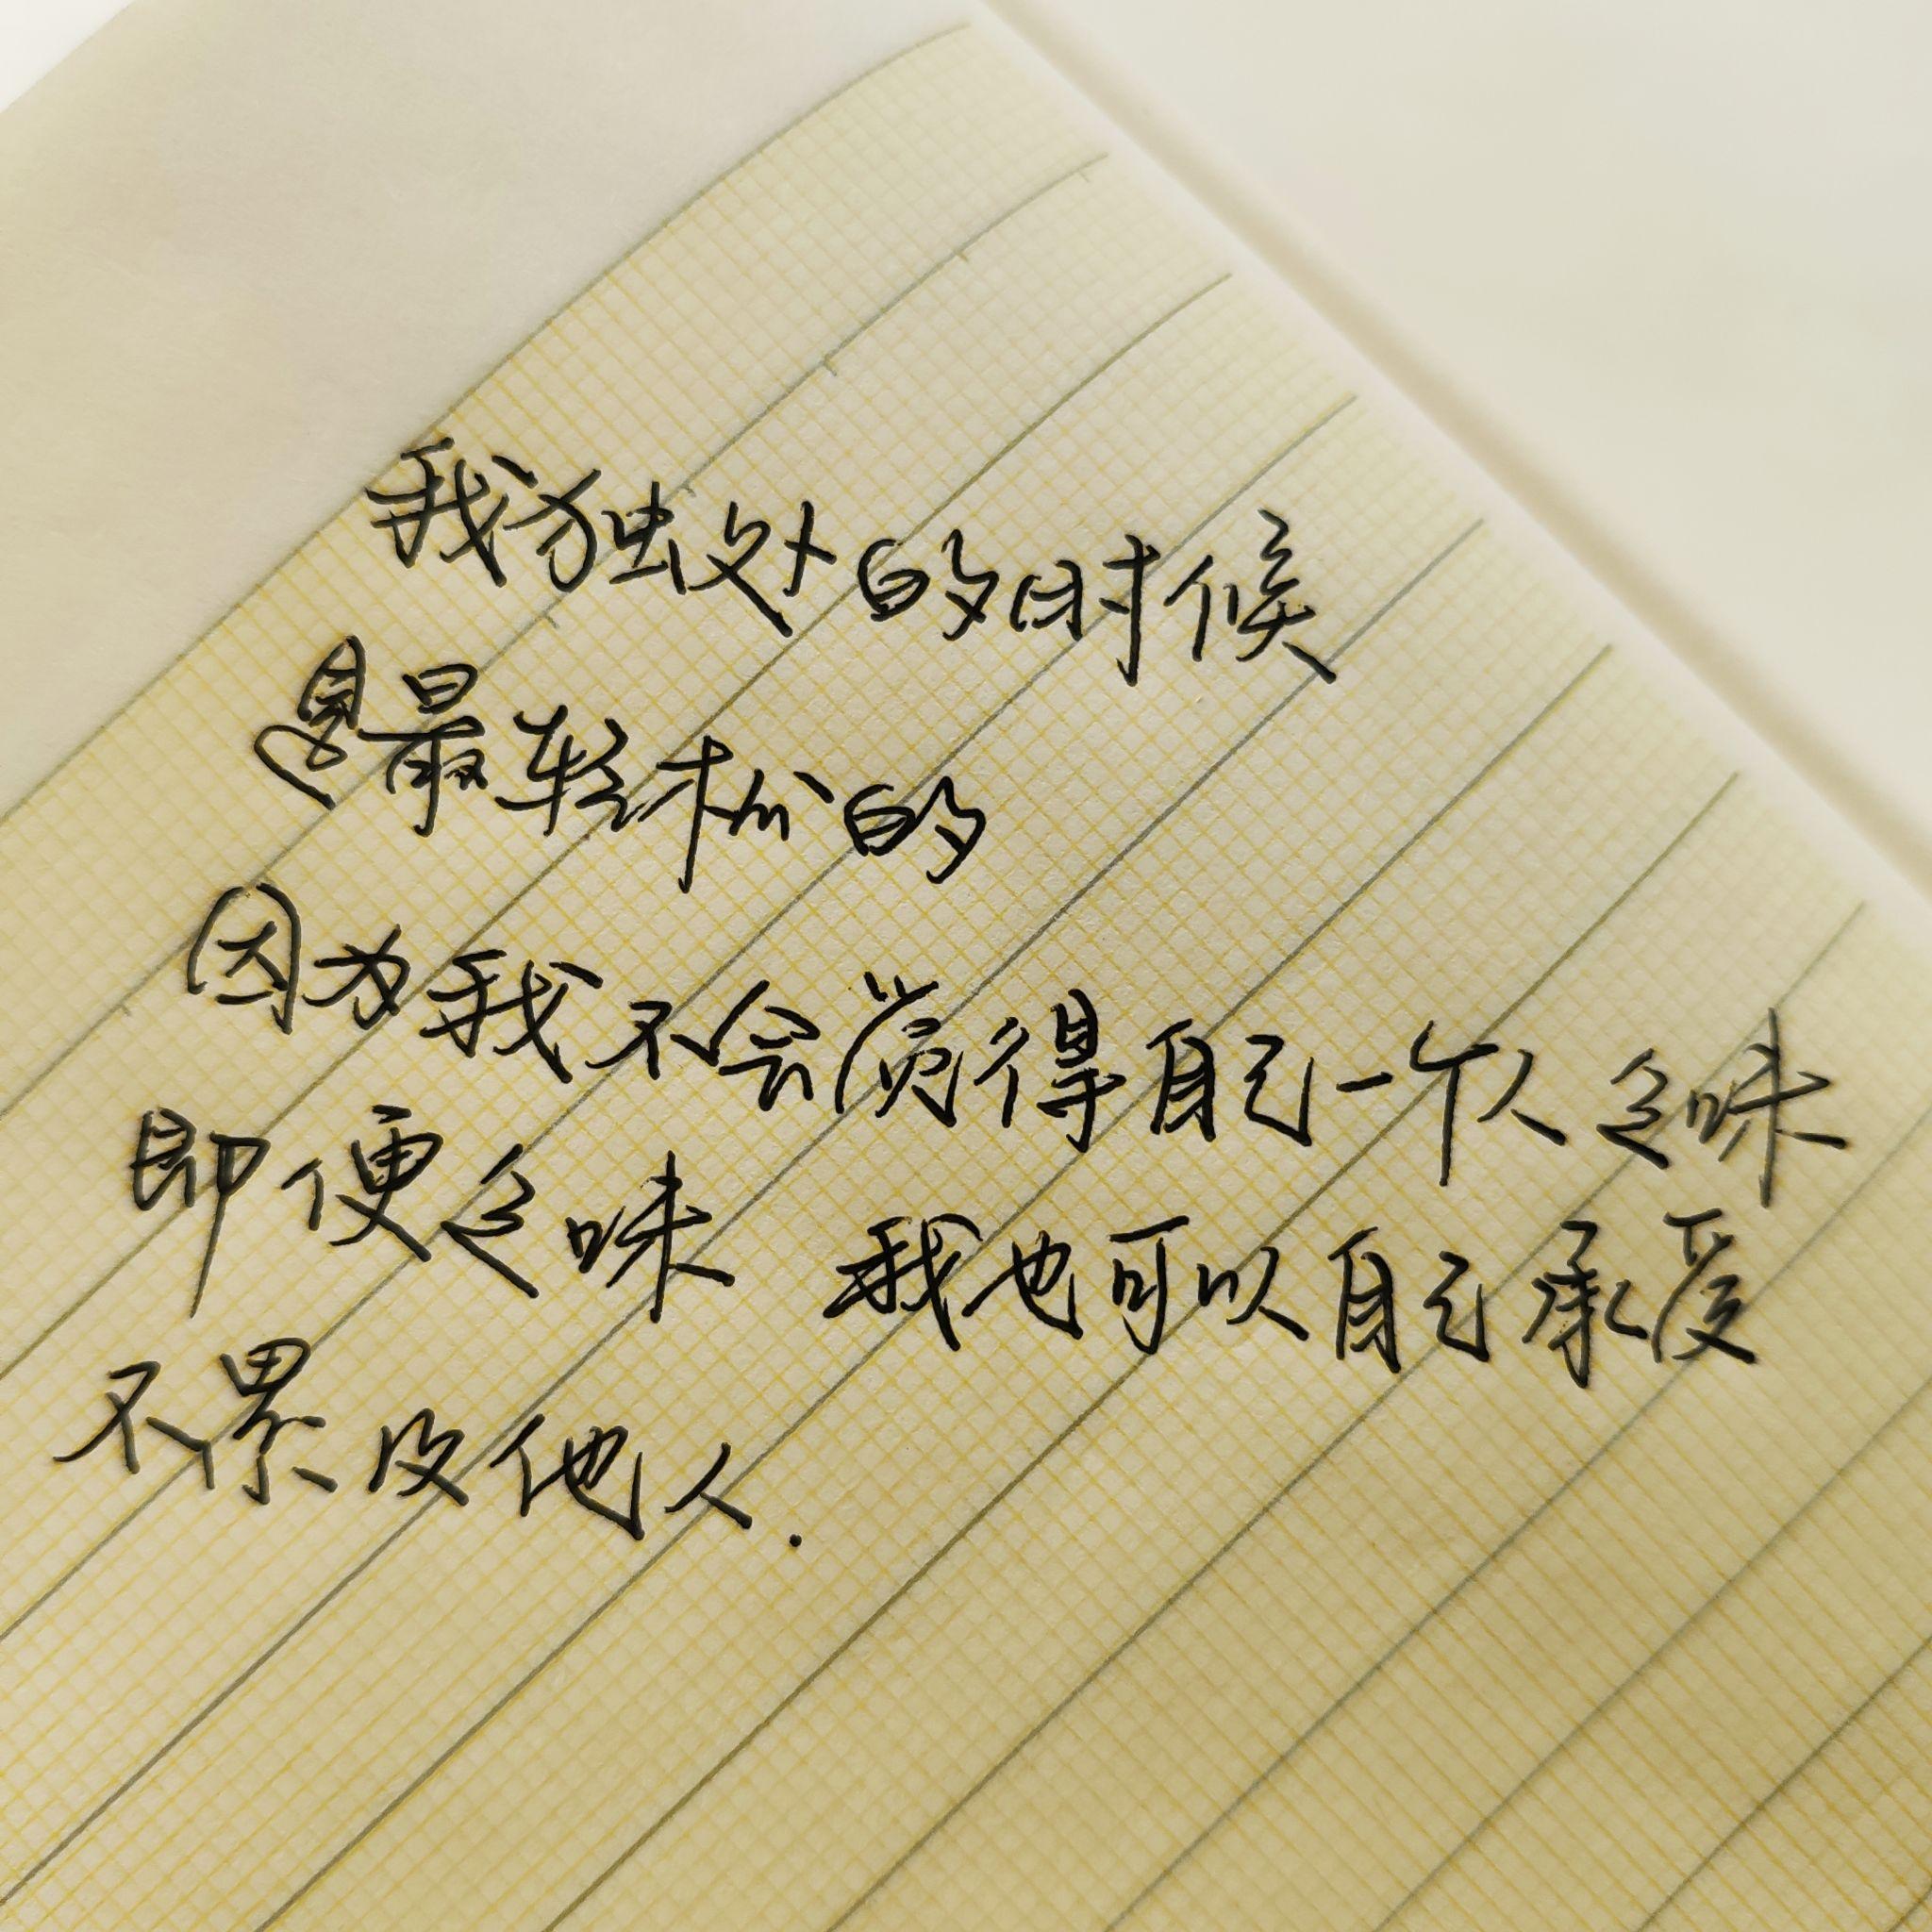 我独处的时候
是最轻松的
因为我不会觉得自己一个人乏味
即便乏味 我也可以自己承受
不累及他人.